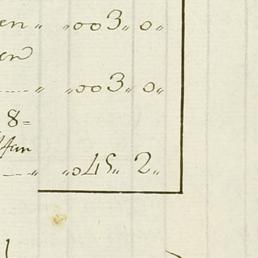 en „ „003„ 0„
en
„ „003„ 0„
8=
„ „045„ 2„